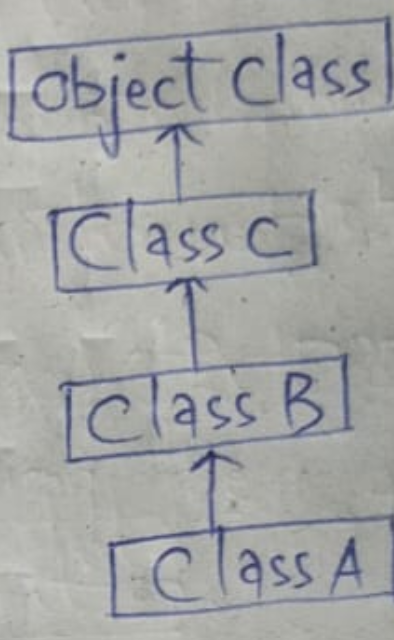 Object Class
Class C
Class B
Class A